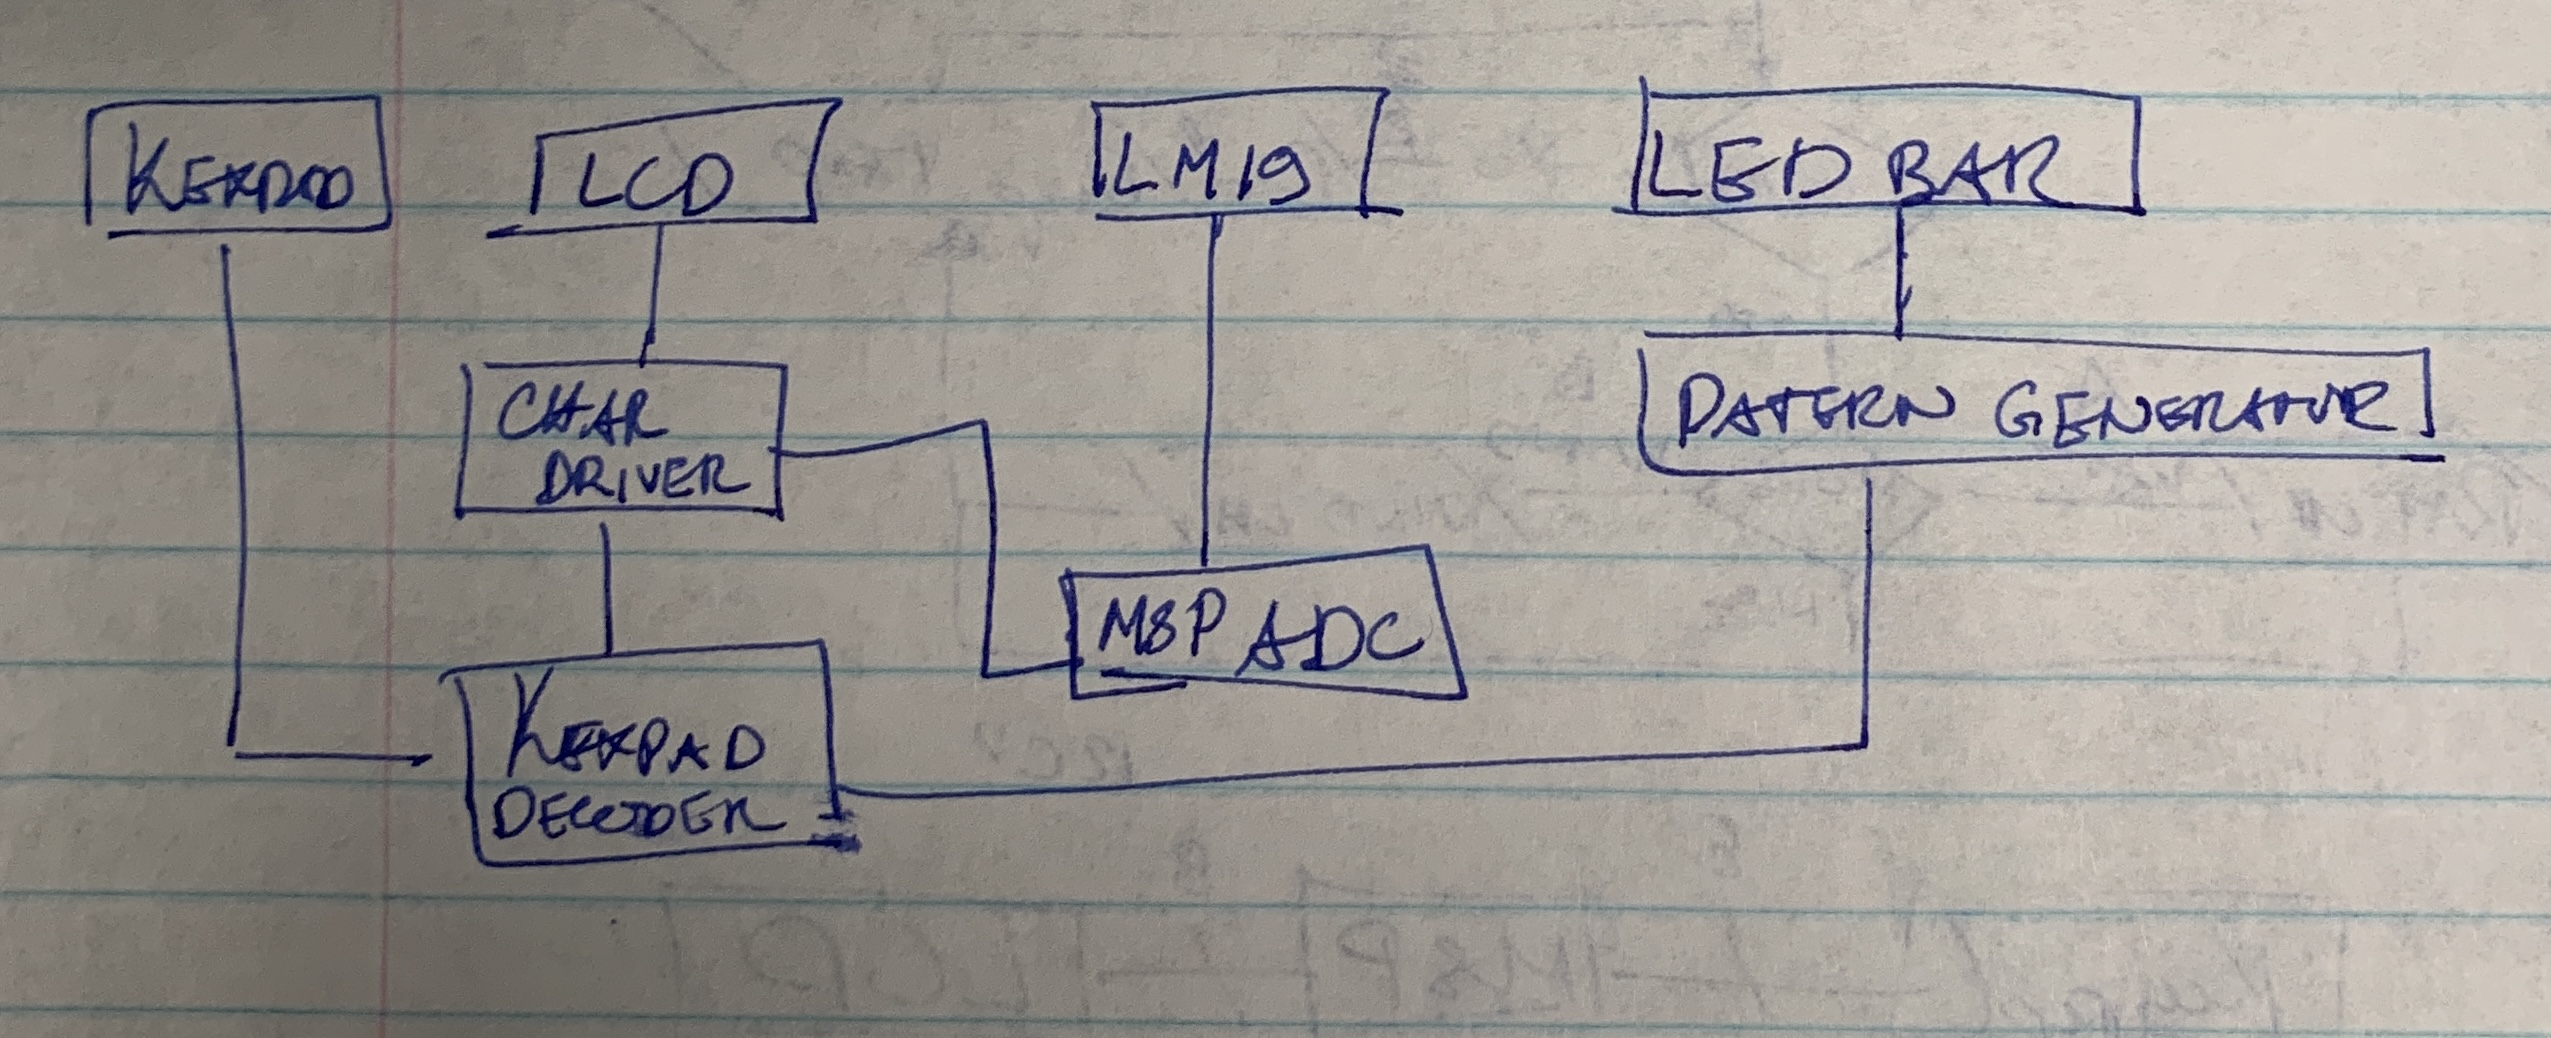 KEYPAD
LCD
LM19
LED BAR
CHAR
DRIVER
PATERN GENERATOR
MSP ADC
KEYPAD
DECODER